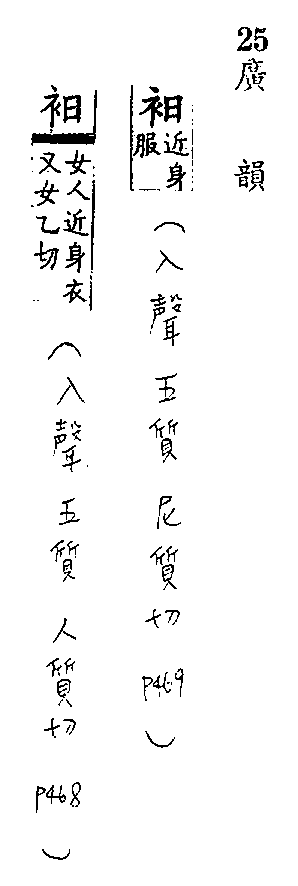 25
廣韻
衵 近身服（入聲五質尼質切 P469）
衵 女人近身衣又女乙切（入聲五質人質切 P468）